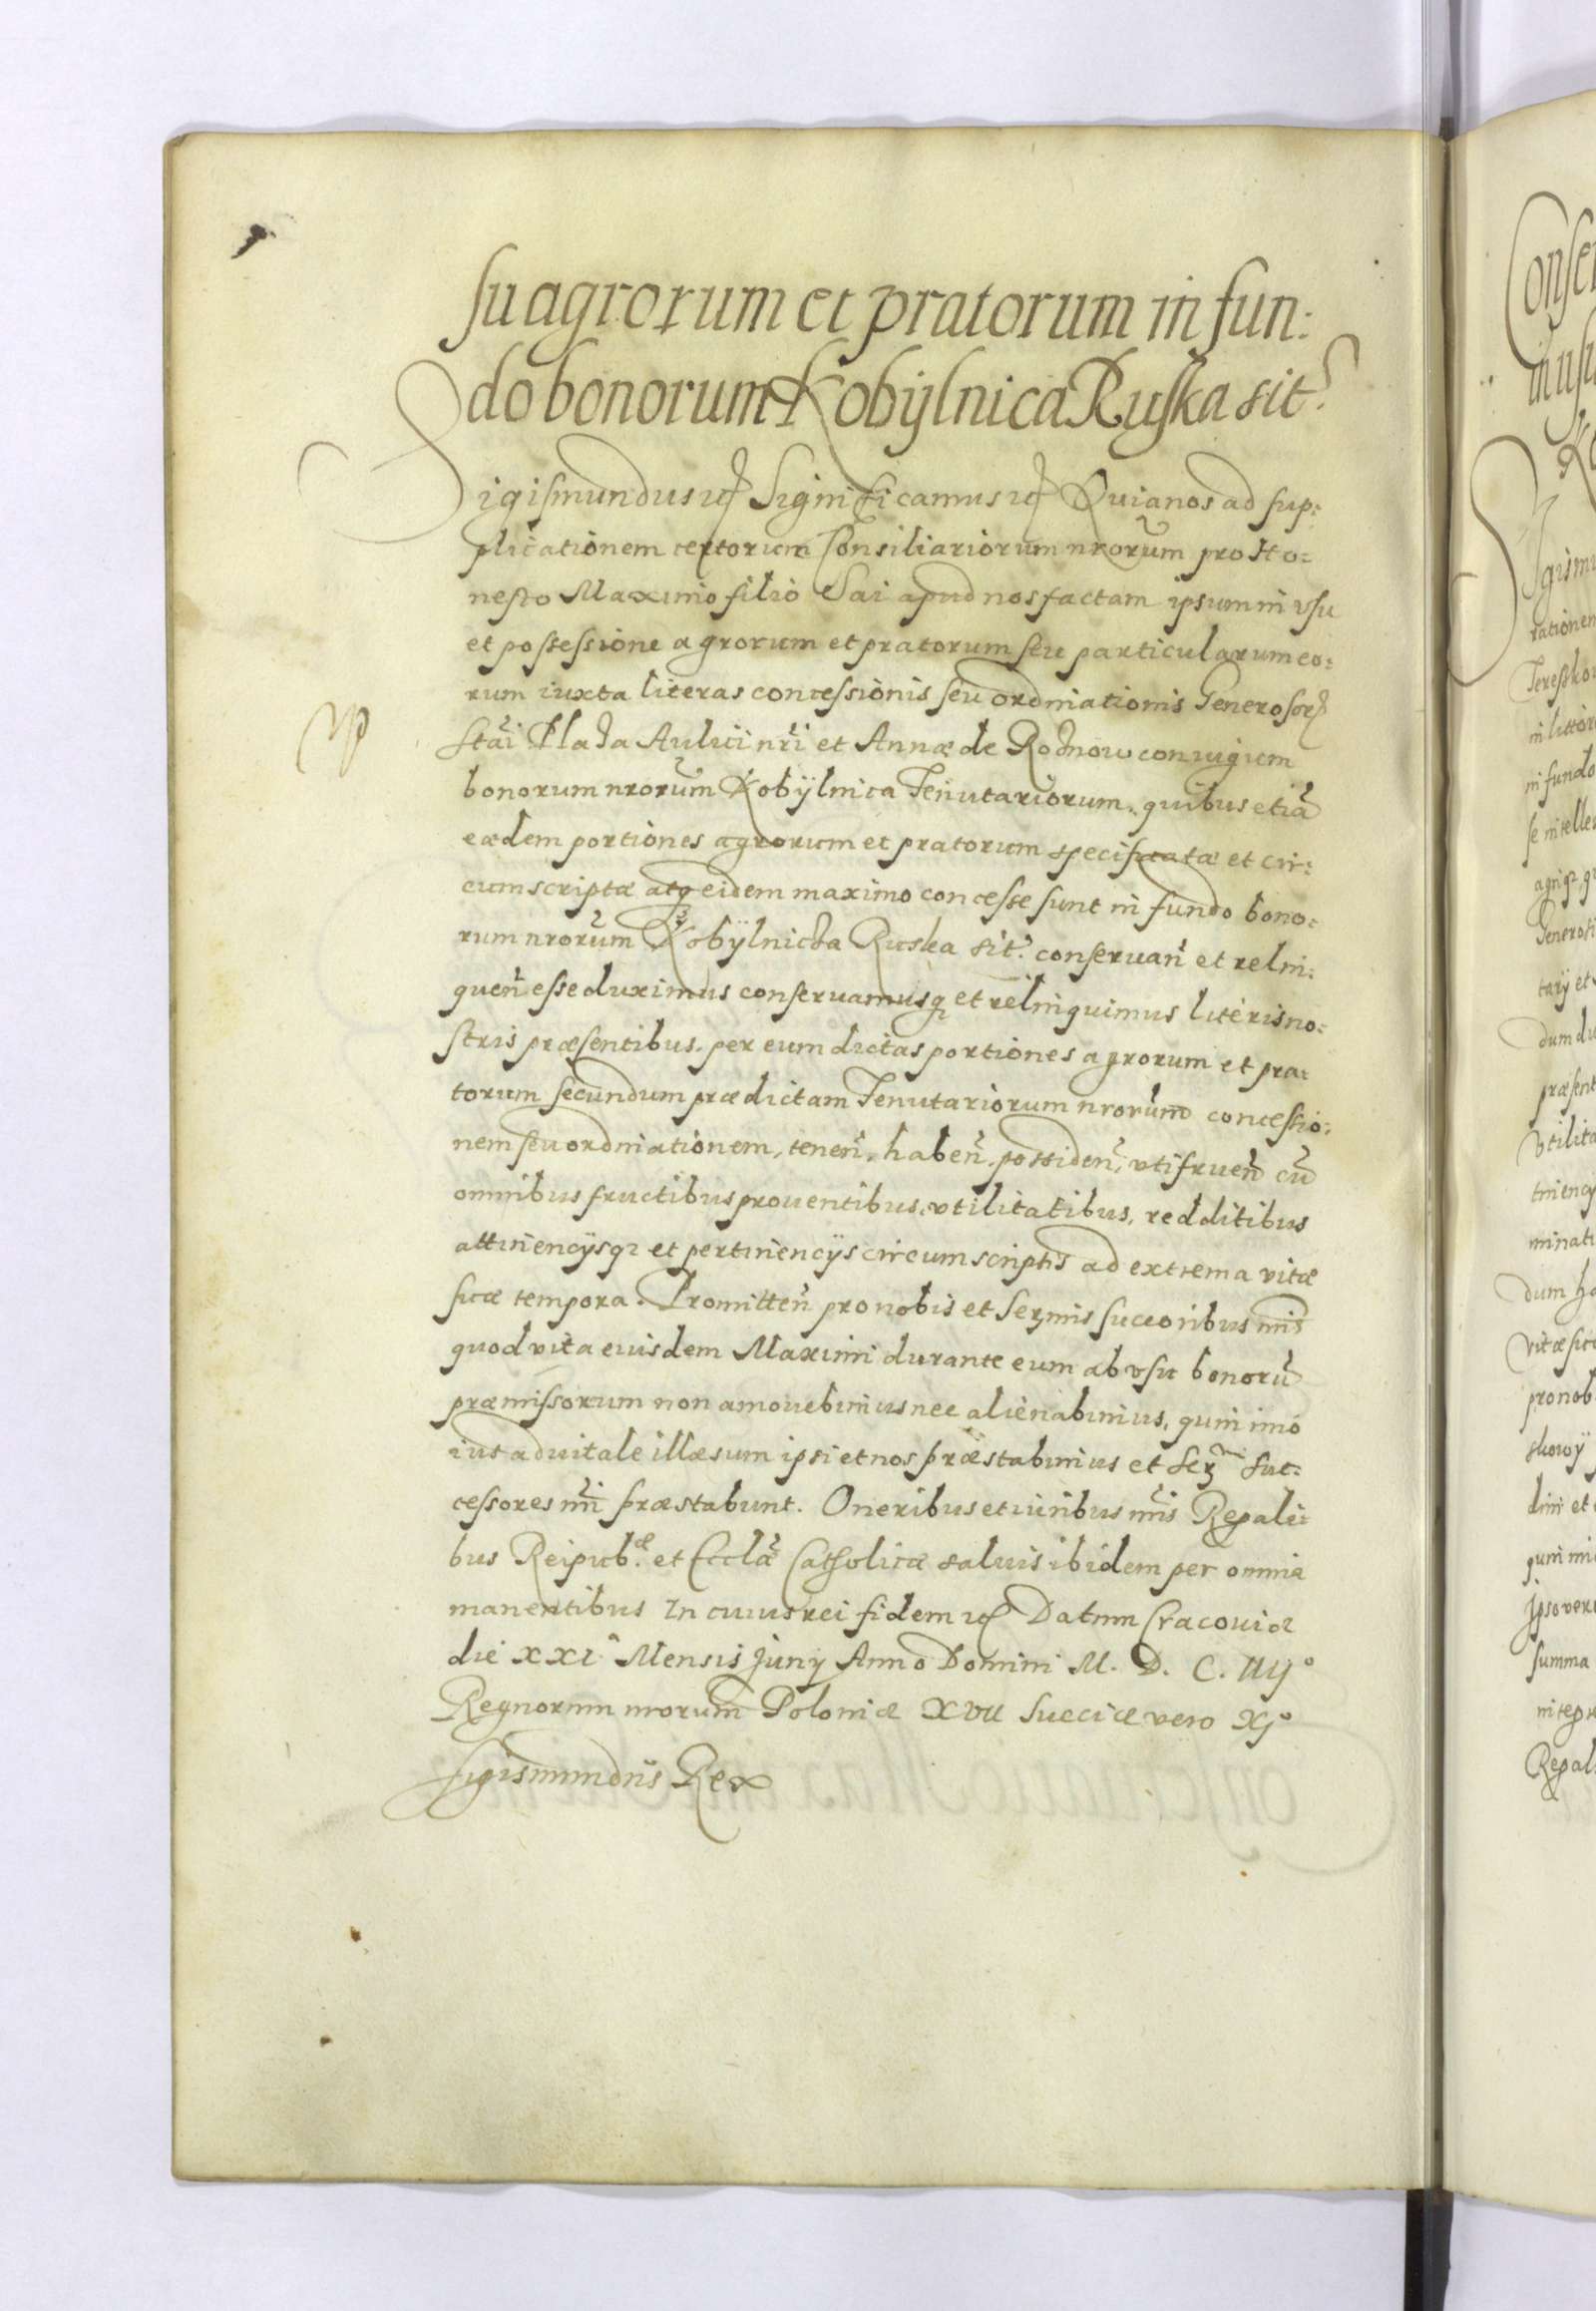 su agrorum et pratorum in fun:
do bonorum Kobÿlnica Ruska sit:
Sigismundus etc Significamus etc Quia nos ad sup:
plicationem certorum Consiliariorum nrorum pro Ho:
nesto Maximo filio Sai apud nos factam ipsum in vsu
et possessione agrorum et pratorum seu particularum eo:
rum iuxta literas concessionis seu ordinationis Generosor
Stai Aulici nri et Annæ de Rochnow coniugum
bonorum nrorum Kobÿlnica Tenutariorum, quibus etia
eædem portiones agrorum et pratorum specificatæ et cir:
cumscriptæ atq eidem maximo concesse sunt in fundo bono:
rum nrorum Kobÿlnicza Ruska sit. conseruan et relin:
quen esse duximus conseruamusq et relinquimus literis no:
stris præsentibus. per eum dictas portiones agrorum et pra:
torum secundum prædictam Tenutariorum nrorum concessio:
nem seu ordinationem, tenen, haben, possiden, vtifruen cu
omnibus fructibus prouentibus, vtilitatibus, redditibus
attinencÿsq et pertinencÿs circumscriptis ad extrema vitæ
suæ tempora. Promitten pro nobis et Sermis succoribus nris
quod vita eiusdem Maximi durante eum ab vsu bonoru
præmissorum non amouebimus nec alienabimus, quin imo
ius aduitale illæsum ipsi et nos præstabimus et Ser Suc:
cessores nri præstabunt. Oneribus et iuribus nris Regali:
bus Reipub.æ et Eccla Catholicæ saluis ibidem per omnia
manentibus In cuius rei fidem etc Datum Cracouiæ
die XXI Mensis Junÿ Anno Domini M. D. C. IIIJº
Regnorum nrorum Poloniæ XVII Sueciæ vero XJº
Sigismundus Rex